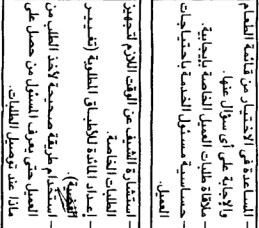 - المساعدة فى الاختيار من قائمة الطعام
والإجابة على أى سؤال عنها.
- ملاقاة طلبات العميل الخاصة بإيجابية.
- حساسية مسئول الخدمة باحتياجات
العميل.
- استشارة الضيف عن الوقت اللازم لتجهيز
الطلبات الخاصة.
- إعداد المائدة للأطباق المطلوبة (تغيير
الفضية).
- استخدام طريقة صحيحة لأخذ الطلب من
العميل حتى يعرف المسئول من حصل على
ماذا عند توصيل الطلبات.